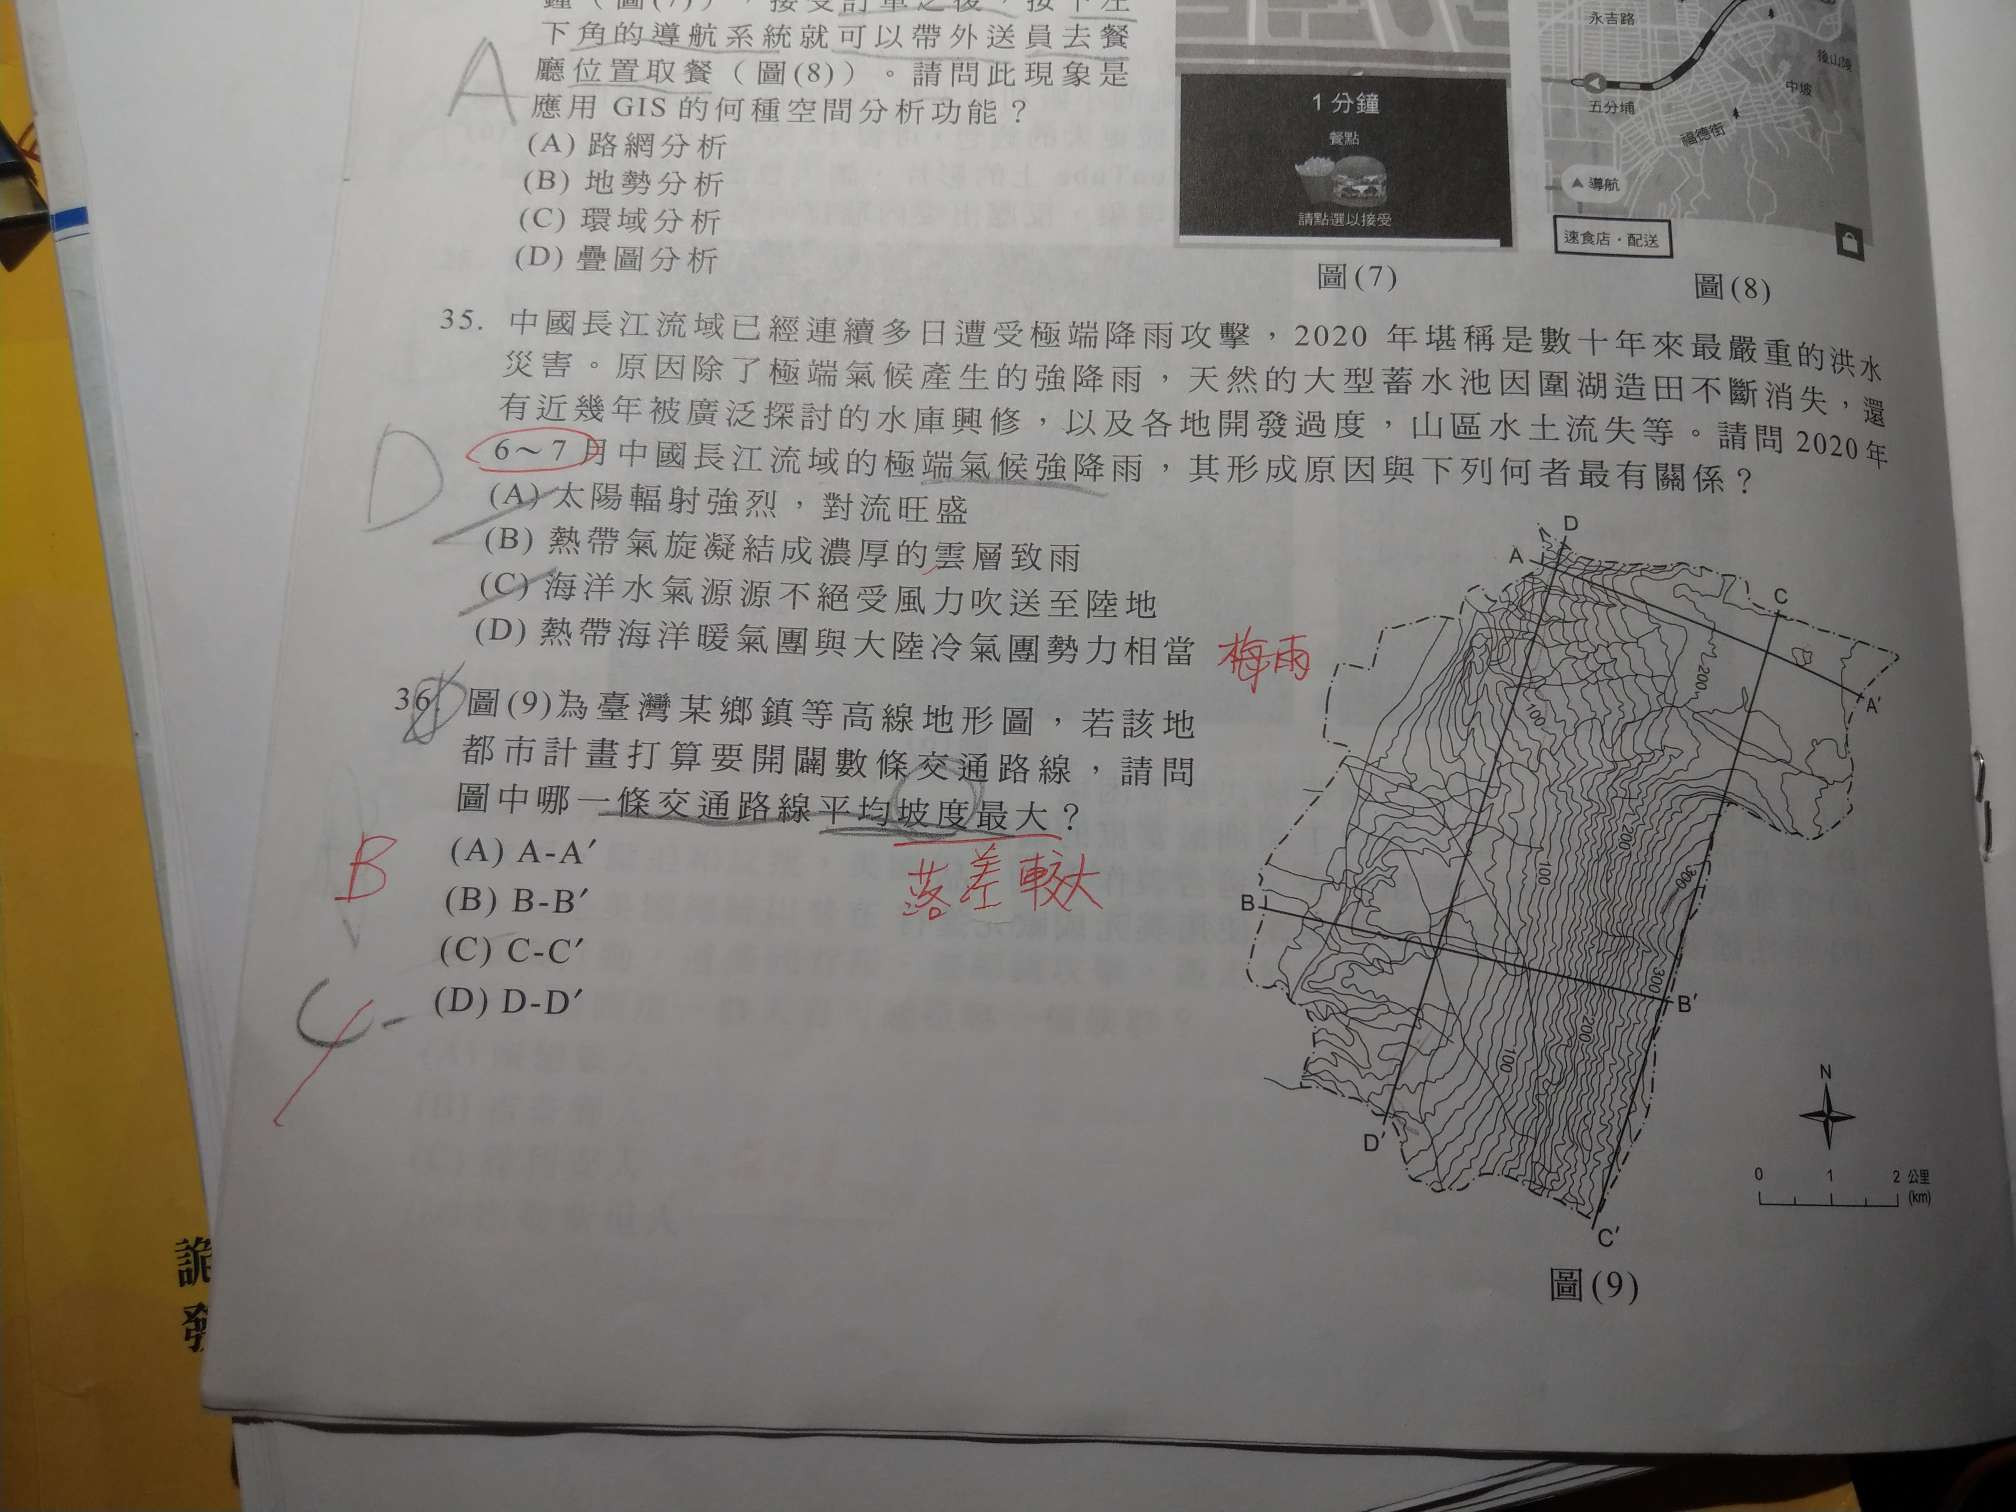 鐘（圖(7)），接受訂單之後，按下左
下角的導航系統就可以帶外送員去餐
廳位置取餐（圖(8)）。請問此現象是
應用 GIS 的何種空間分析功能？
A
(A) 路網分析
(B) 地勢分析
(C) 環域分析
(D) 疊圖分析
1 分鐘
餐點
請點選以接受
圖(7)
永吉路
後山陂
中坡
五分埔
福德街
導航
速食店・配送
圖(8)
35. 中國長江流域已經連續多日遭受極端降雨攻擊，2020 年堪稱是數十年來最嚴重的洪水
災害。原因除了極端氣候產生的強降雨，天然的大型蓄水池因圍湖造田不斷消失，還
有近幾年被廣泛探討的水庫興修，以及各地開發過度，山區水土流失等。請問 2020 年
6～7 月中國長江流域的極端氣候強降雨，其形成原因與下列何者最有關係？
D
(A) 太陽輻射強烈，對流旺盛
(B) 熱帶氣旋凝結成濃厚的雲層致雨
(C) 海洋水氣源源不絕受風力吹送至陸地
(D) 熱帶海洋暖氣團與大陸冷氣團勢力相當 梅雨
36. 圖(9)為臺灣某鄉鎮等高線地形圖，若該地
都市計畫打算要開闢數條交通路線，請問
圖中哪一條交通路線平均坡度最大？
落差較大
B
(A) A-A′
(B) B-B′
(C) C-C′
(D) D-D′
C
D
A
C
A′
200
100
200
100
300
B
B′
300
200
100
D′
C′
N
0 1 2 公里
(km)
圖(9)
詭
發